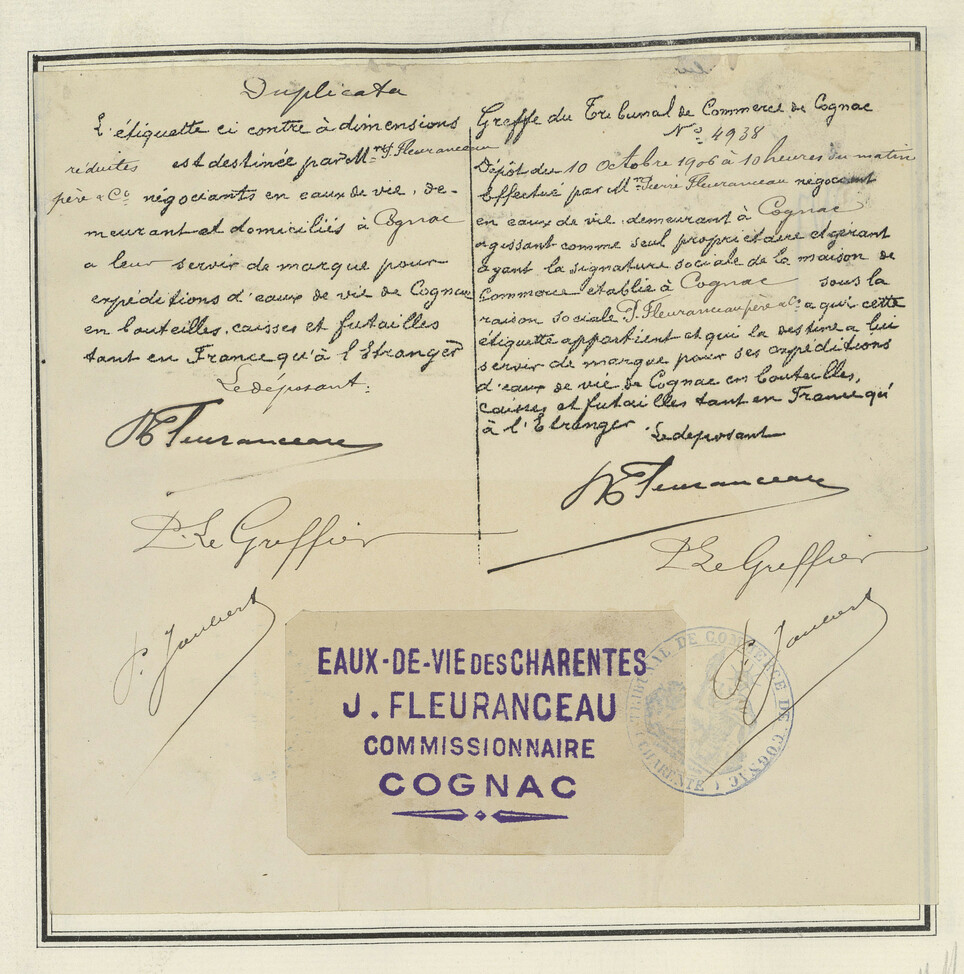 Duplicata
L'étiquette ci contre à dimensions
réduites est destinée par Mrs P. Fleuranceau
père & Co négociants en eaux de vie, de-
meurant et domiciliés à Cognac
a leur servir de marque pour
expéditions d'eaux de vie de Cognac
en bouteilles, caisses et futailles
tant en France qu'à l'Etranger
Le déposant:
Fleuranceau
P. Le Greffier
P. Jaubert
Greffe du Tribunal de Commerce de Cognac
No. 4938
Dépôt du 10 Octobre 1906 à 10 heures du matin
Effectué par Mr Pierre Fleuranceau négociant
en eaux de vie demeurant à Cognac
agissant comme seul propriétaire et gérant
ayant la signature sociale de la maison de
Commerce établie à Cognac sous la
raison sociale P. Fleuranceau père & Co a qui cette
étiquette appartient et qui la destine a lui
servir de marque pour ses expéditions
d'eaux de vie de Cognac en bouteilles,
caisses et futailles tant en France qu'
à l'Etranger. Le déposant
Fleuranceau
P. Le Greffier
P. Jaubert
EAUX-DE-VIE DES CHARENTES
J. FLEURANCEAU
COMMISSIONNAIRE
COGNAC
TRIBUNAL DE COMMERCE DE COGNAC
(CHARENTE)